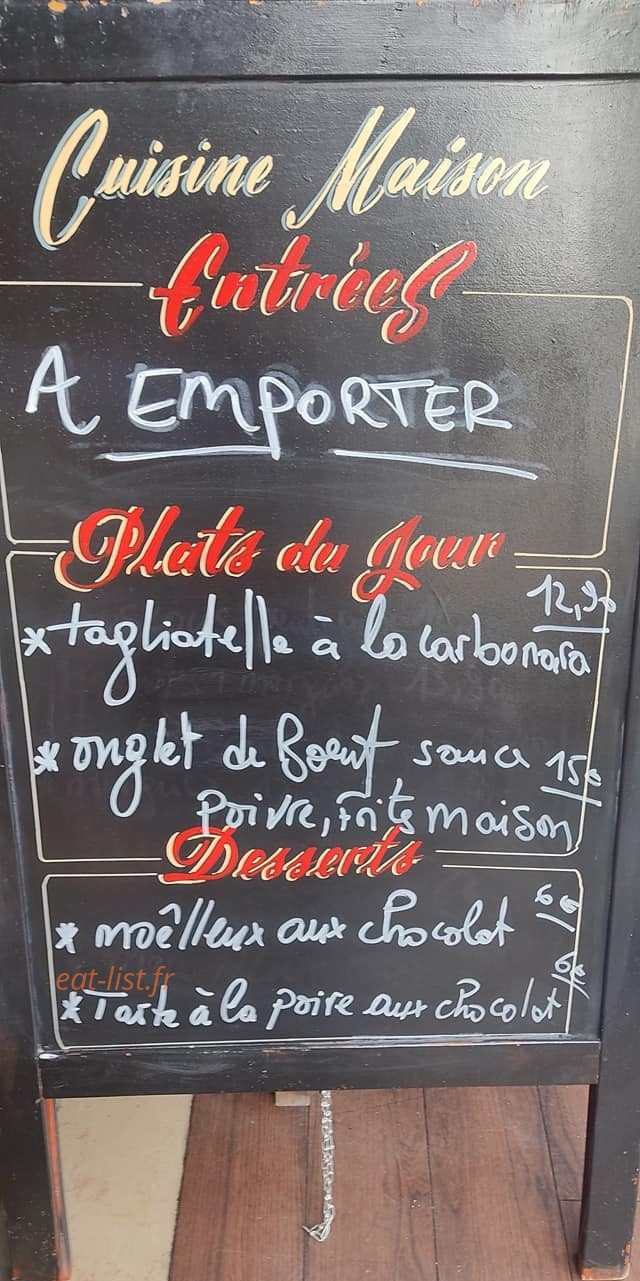 Cuisine Maison
Entrées
A EMPORTER
Plats du Jour
12,90
* tagliatelle à la carbonara
* onglet de Boeuf sauce 15€
Poivre, Frites maison
Desserts
* moêlleux aux chocolat 6€
eat-list.fr
* Tarte à la poire aux chocolat 6€